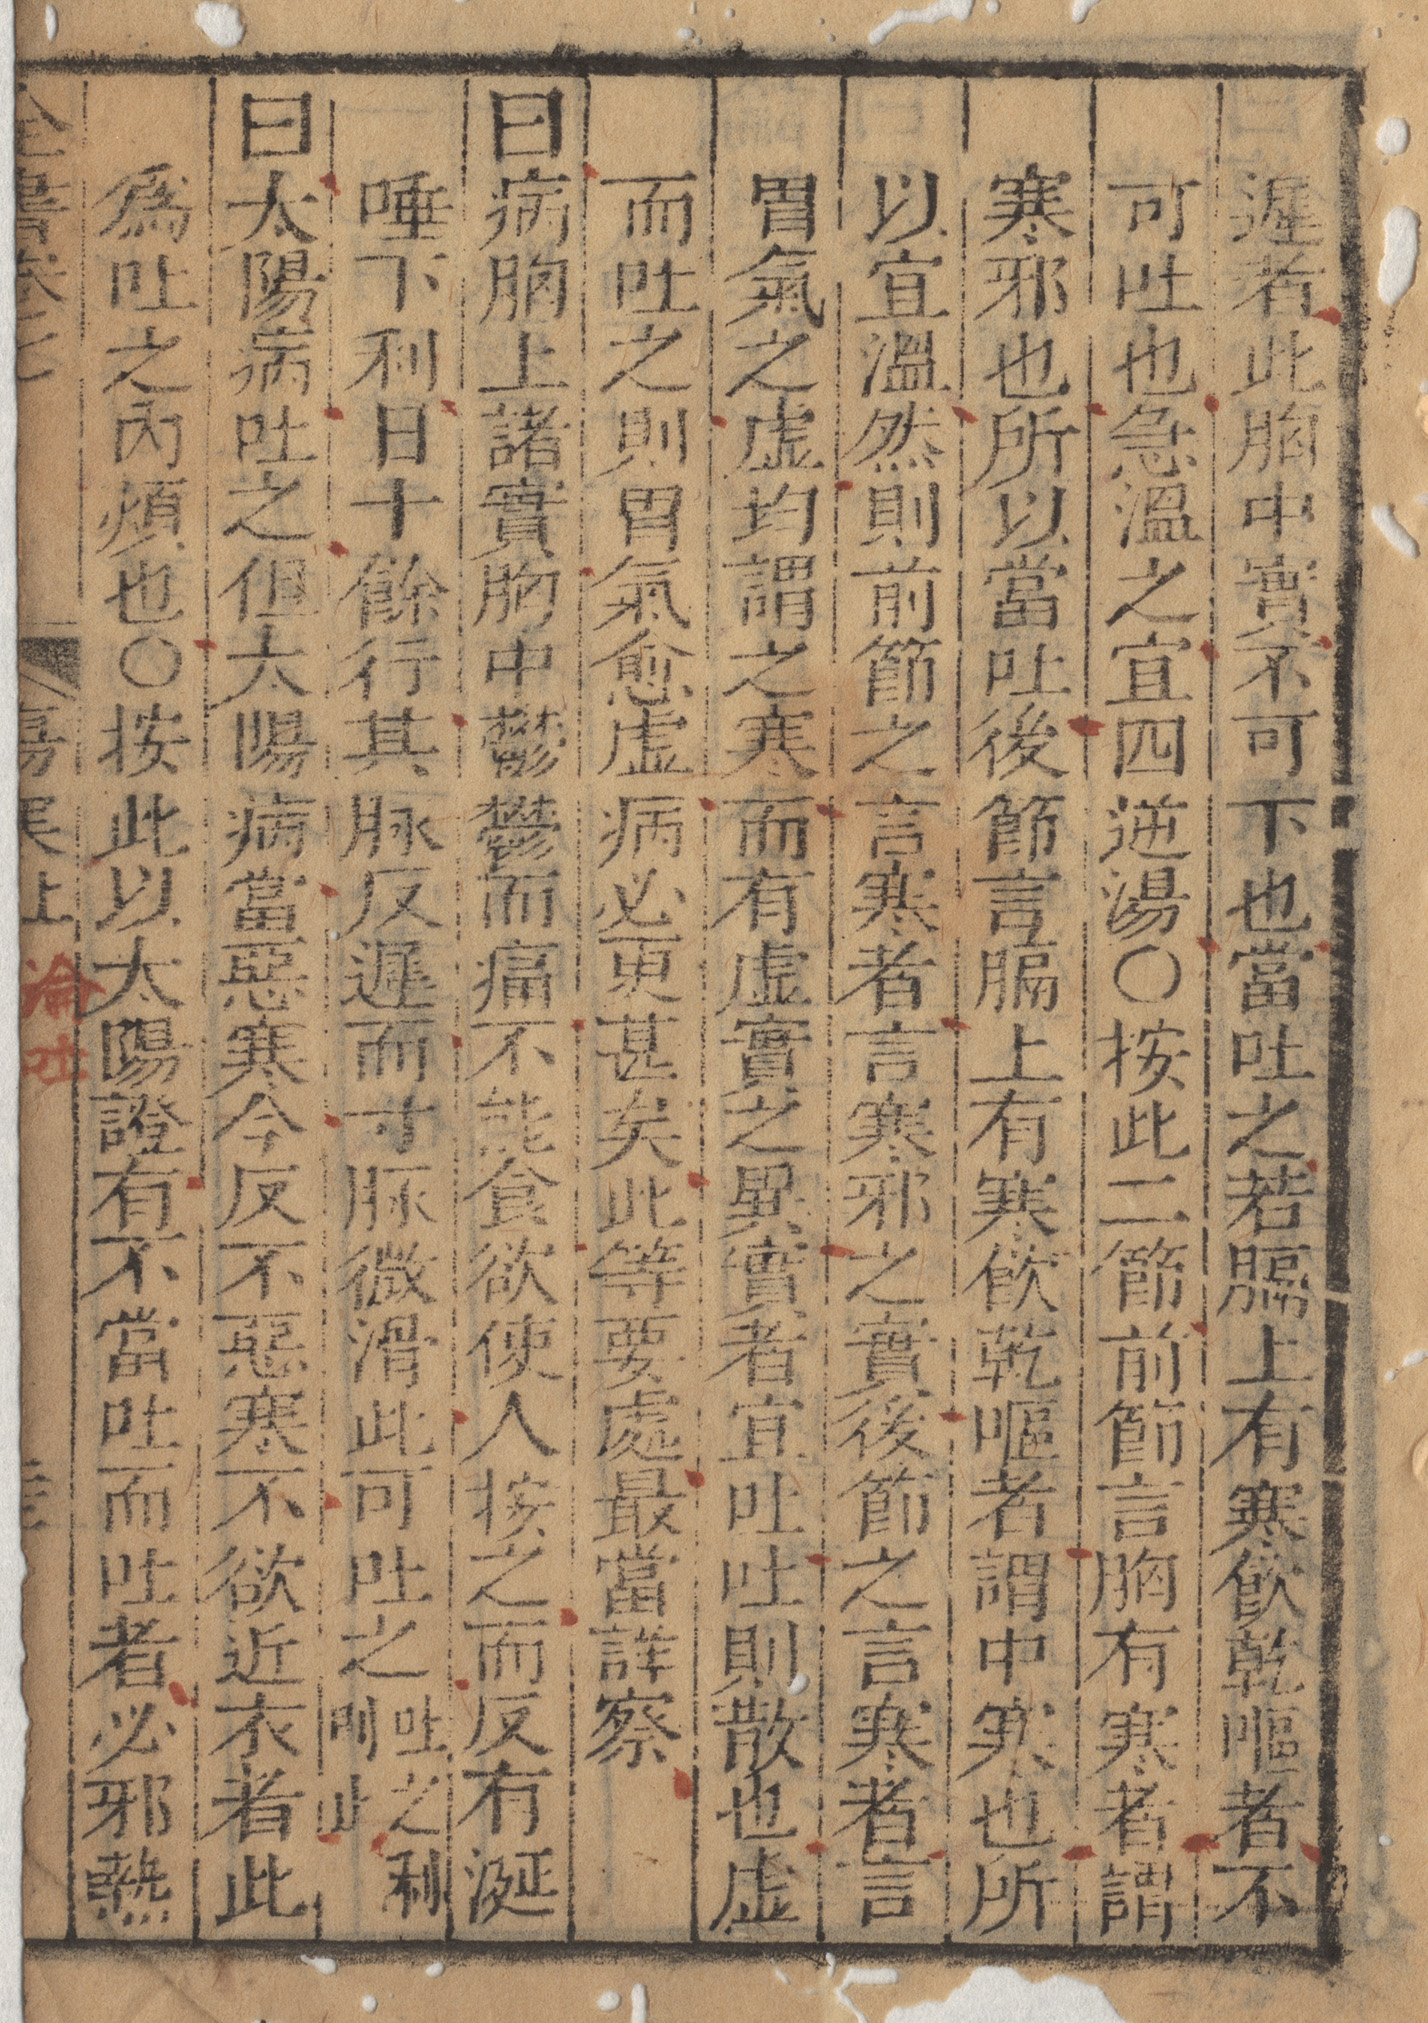 遲者此胸中實不可下也當吐之若膈上有寒飲乾嘔者不
可吐也急溫之宜四逆湯〇按此二節前節言胸有寒者謂
寒邪也所以當吐後節言膈上有寒飲乾嘔者謂中寒也所
以宜溫然則前節之言寒者言寒邪之實後節之言寒者言
胃氣之虛均謂之寒而有虛實之異實者宜吐吐則散也虛
而吐之則胃氣愈虛病必更甚矣此等要處最當詳察
曰病胸上諸實胸中鬱鬱而痛不能食欲使人按之而反有涎
唾下利日十餘行其脉反遲而寸脉微滑此可吐之吐之利
則止
曰太陽病吐之但太陽病當惡寒今反不惡寒不欲近衣者此
為吐之內煩也〇按此以太陽證有不當吐而吐者必邪熱
全書卷之七
傷寒上
論吐